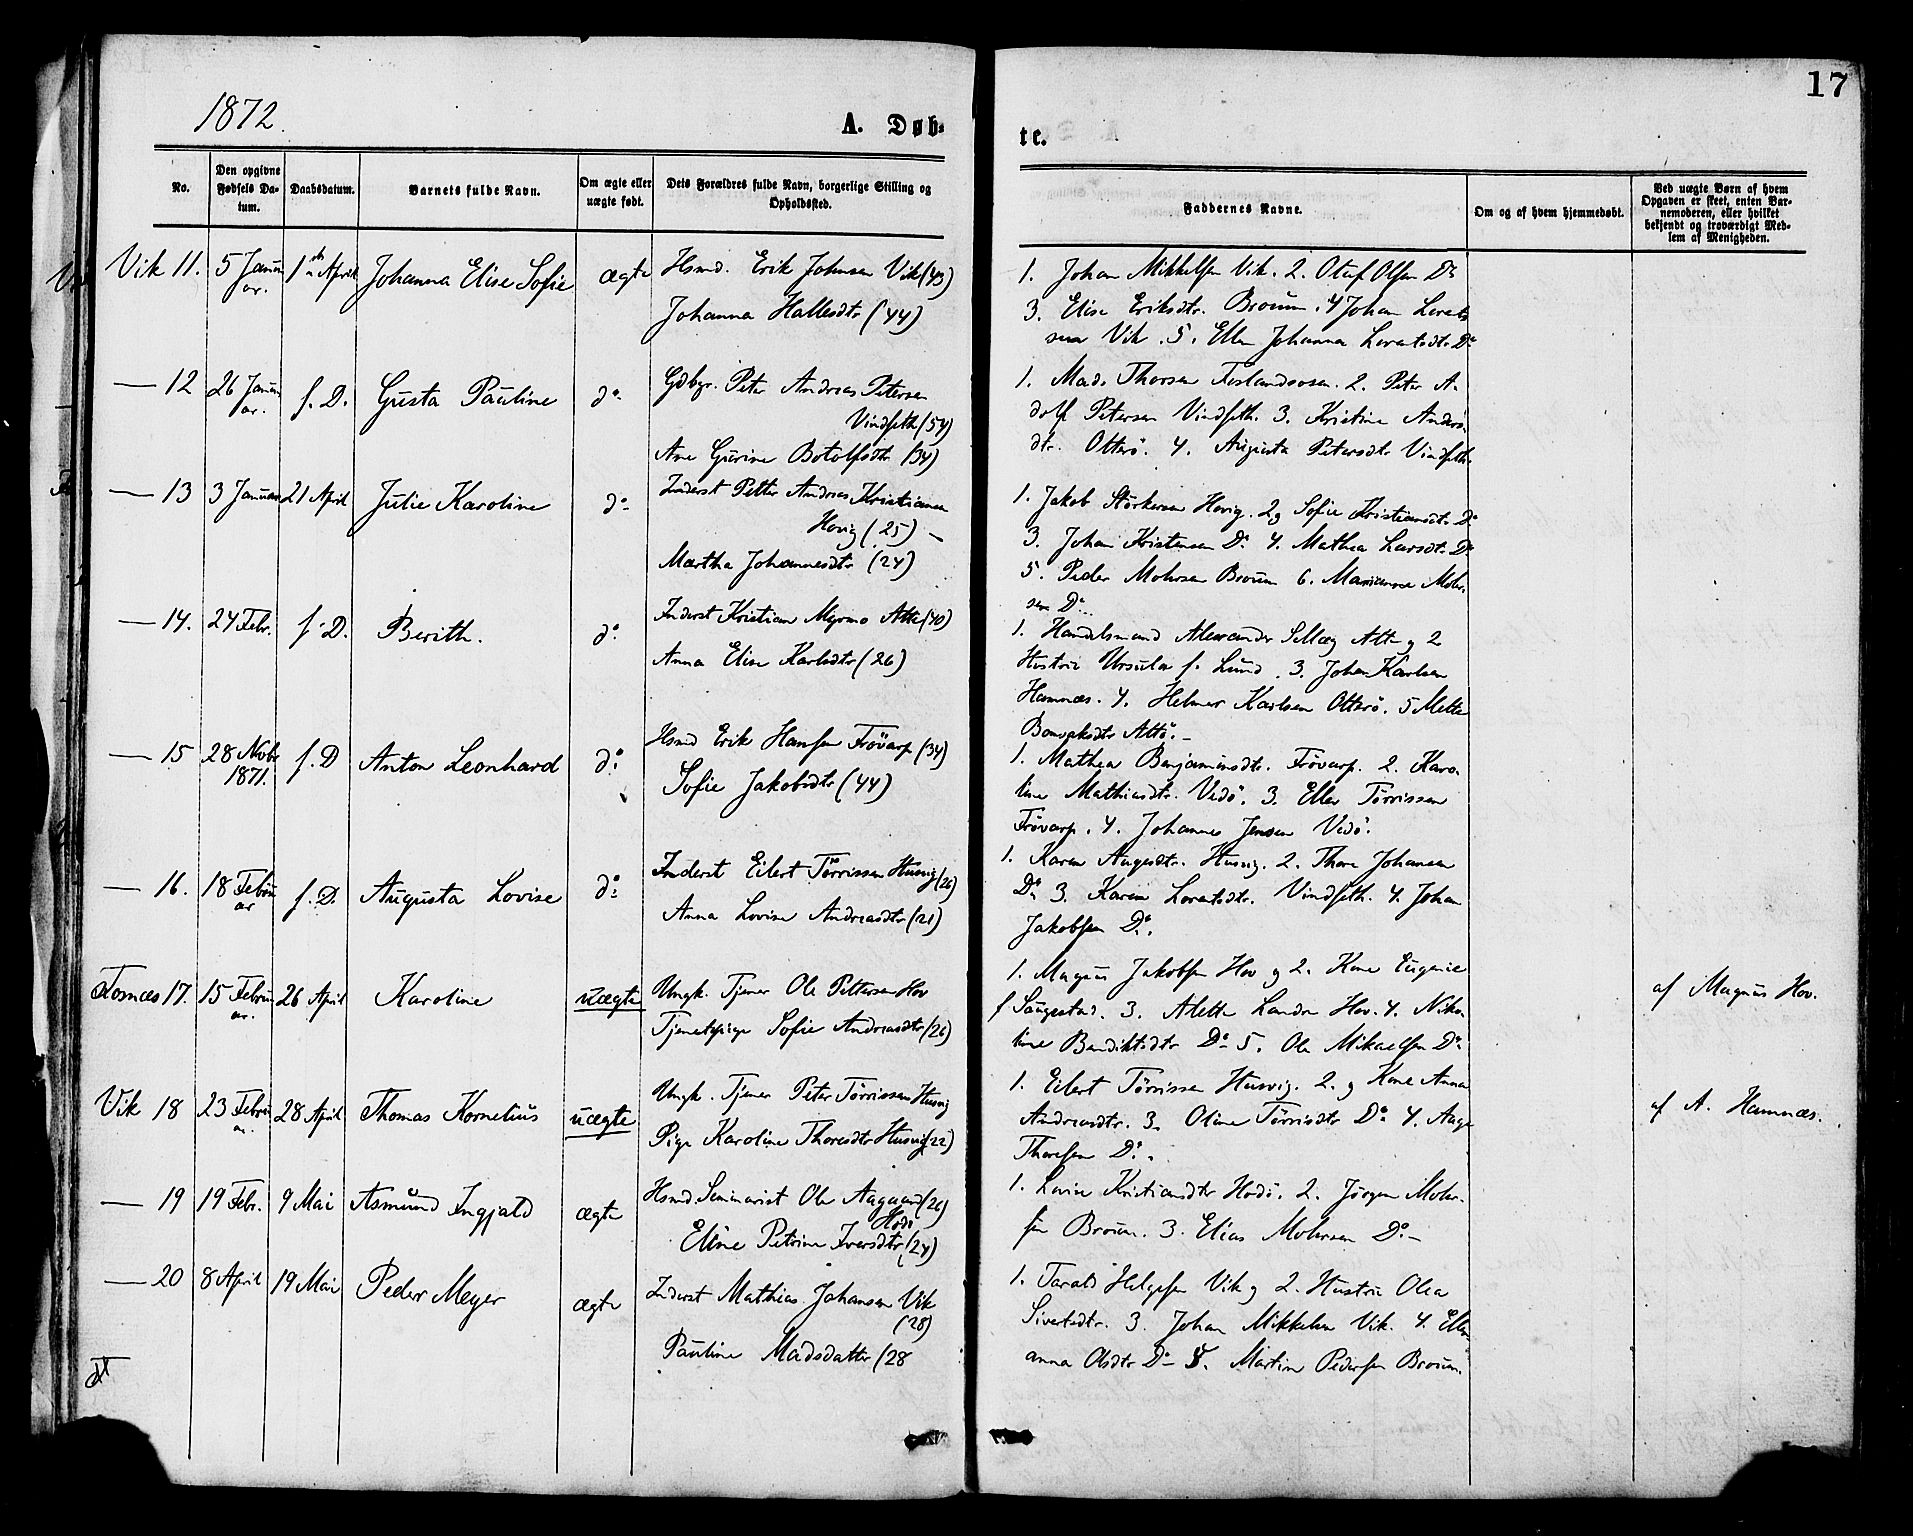 17
1872.
A. Døb-
te.
No.
Den opgivne Fødsels Datum.
Daabsdatum.
Barnets fulde Navn.
Om ægte eller uægte født.
Dets Forældres fulde Navn, borgerlige Stilling og Opholdssted.
Faddernes Navne.
Om og af hvem hjemmedøbt.
Ved uægte Børn af hvem Opgaven er skeet, enten Barnemoderen, eller hvilket bekjendt og troværdigt Medlem af Menigheden.
Vik 11. 5 Januar. 1ste April Johanna Elise Sofie ægte Hsmd. Erik Johnsen Vik (43)
Johanna Hallesdtr (44)
1. Johan Mikkelsen Vik. 2. Oluf Olsen Do
3. Elise Eriksdtr. Broum. 4 Johan Lorents
sen Vik. 5. Ellen Johanna Lorentsdtr. Do
— 12 26 Januar. f. D. Gusta Pauline do. Gdbgr. Peter Andreas Petersen
Vindseth (54)
Ane Gurine Botolfsdtr (34)
1. Mads Thorsen Foslandsosen. 2. Peter A-
dolf Petersen Vindseth. 3. Kristine Anders-
dtr. Otterö. 4. Augusta Petersdtr Vindseth.
— 13 3 Januar 21 April Julie Karoline do. Inderst Petter Andreas Kristiansen
Hovig (25) —
Martha Johannesdtr (24)
1. Jakob Storkersen Hovig. 2 og Sofie Kristiansdtr. Do
3. Johan Kristensen Do. 4. Mathea Larsdtr. Do
5. Peder Mohrsen Broum 6. Marianne Mohr-
sen Do.
— 14. 24 Febr. f. D. Berith. do. Inderst Kristian Myrmo Altö (40)
Anna Elise Karlsdtr (26)
1. Handelsmand Alexander Sellæg Altö og 2
Hustru Ursula f. Lund. 3. Johan Karlsen
Hamnæs. 4. Helmer Karlsen Otterö. 5 Mette
Altö. —
— 15 28 Novbr 1871. f. D Anton Leonhard do. Hsmd Erik Hansen Frövarp (34)
Sofie Jakobsdtr (44)
1. Mathea Benjaminsdtr. Frövarp. 2. Karo-
line Mathiasdtr. Vedö. 3. Eller Törrissen
Frövarp. 4. Johannes Jensen Vedö.
— 16. 18 Februar f. D. Augusta Lovise do. Inderst Eilert Törrissen Husvig (26)
Anna Lovise Andreasdtr (21)
1. Karen Aagesdtr. Husvig. 2. Thore Johansen
Do. 3. Karen Lorentsdtr. Vindseth. 4. Johan
Jakobsen Do.
Fosnæs 17. 15 Februar. 26 April Karoline uægte Ungk. Tjener Ole Pettersen Hov
Tjenestpige Sofie Andreasdtr (26)
1. Magnus Jakobsen Hov og 2. Kone Eugenie
f Saugestad. 3. Alette Landrø Hov. 4. Niko-
line Bendiktsdtr Do. 5. Ole Mikaelsen Do.
af Magnus Hov.
Vik 18 23 Februar. 28 April Thomas Kornelius uægte Ungk. Tjener Peter Törrissen Husvig
Pige Karoline Thoresdtr Husvig (22)
1. Eilert Törrissen Husvig. 2. og Kone Anna
Andreasdtr. 3. Oline Törrisdtr Do. 4. Aage
Thoresen Do.
af A. Hamnæs.
— 19 19 Febr. 9 Mai Asmund Ingjald ægte Hsmd. Seminarist Ole Aagaard (26)
Hodö
Eline Petrine Iversdtr (24)
1. Lovise Kristiandtr Hodö. 2. Jörgen Mohr-
sen Broum. 3. Elias Mohrsen Do. —
— 20 8 April 19 Mai Peder Meyer ægte Inderst Mathias Johansen Vik
(28)
Pauline Madsdatter (28
1. Tarald Helgesen Vik og 2. Hustru Olea
Sivertsdtr. 3. Johan Mikkelsen Vik. 4. Ellen
anna Olsdtr Do. 5. Martin Pedersen Broum.